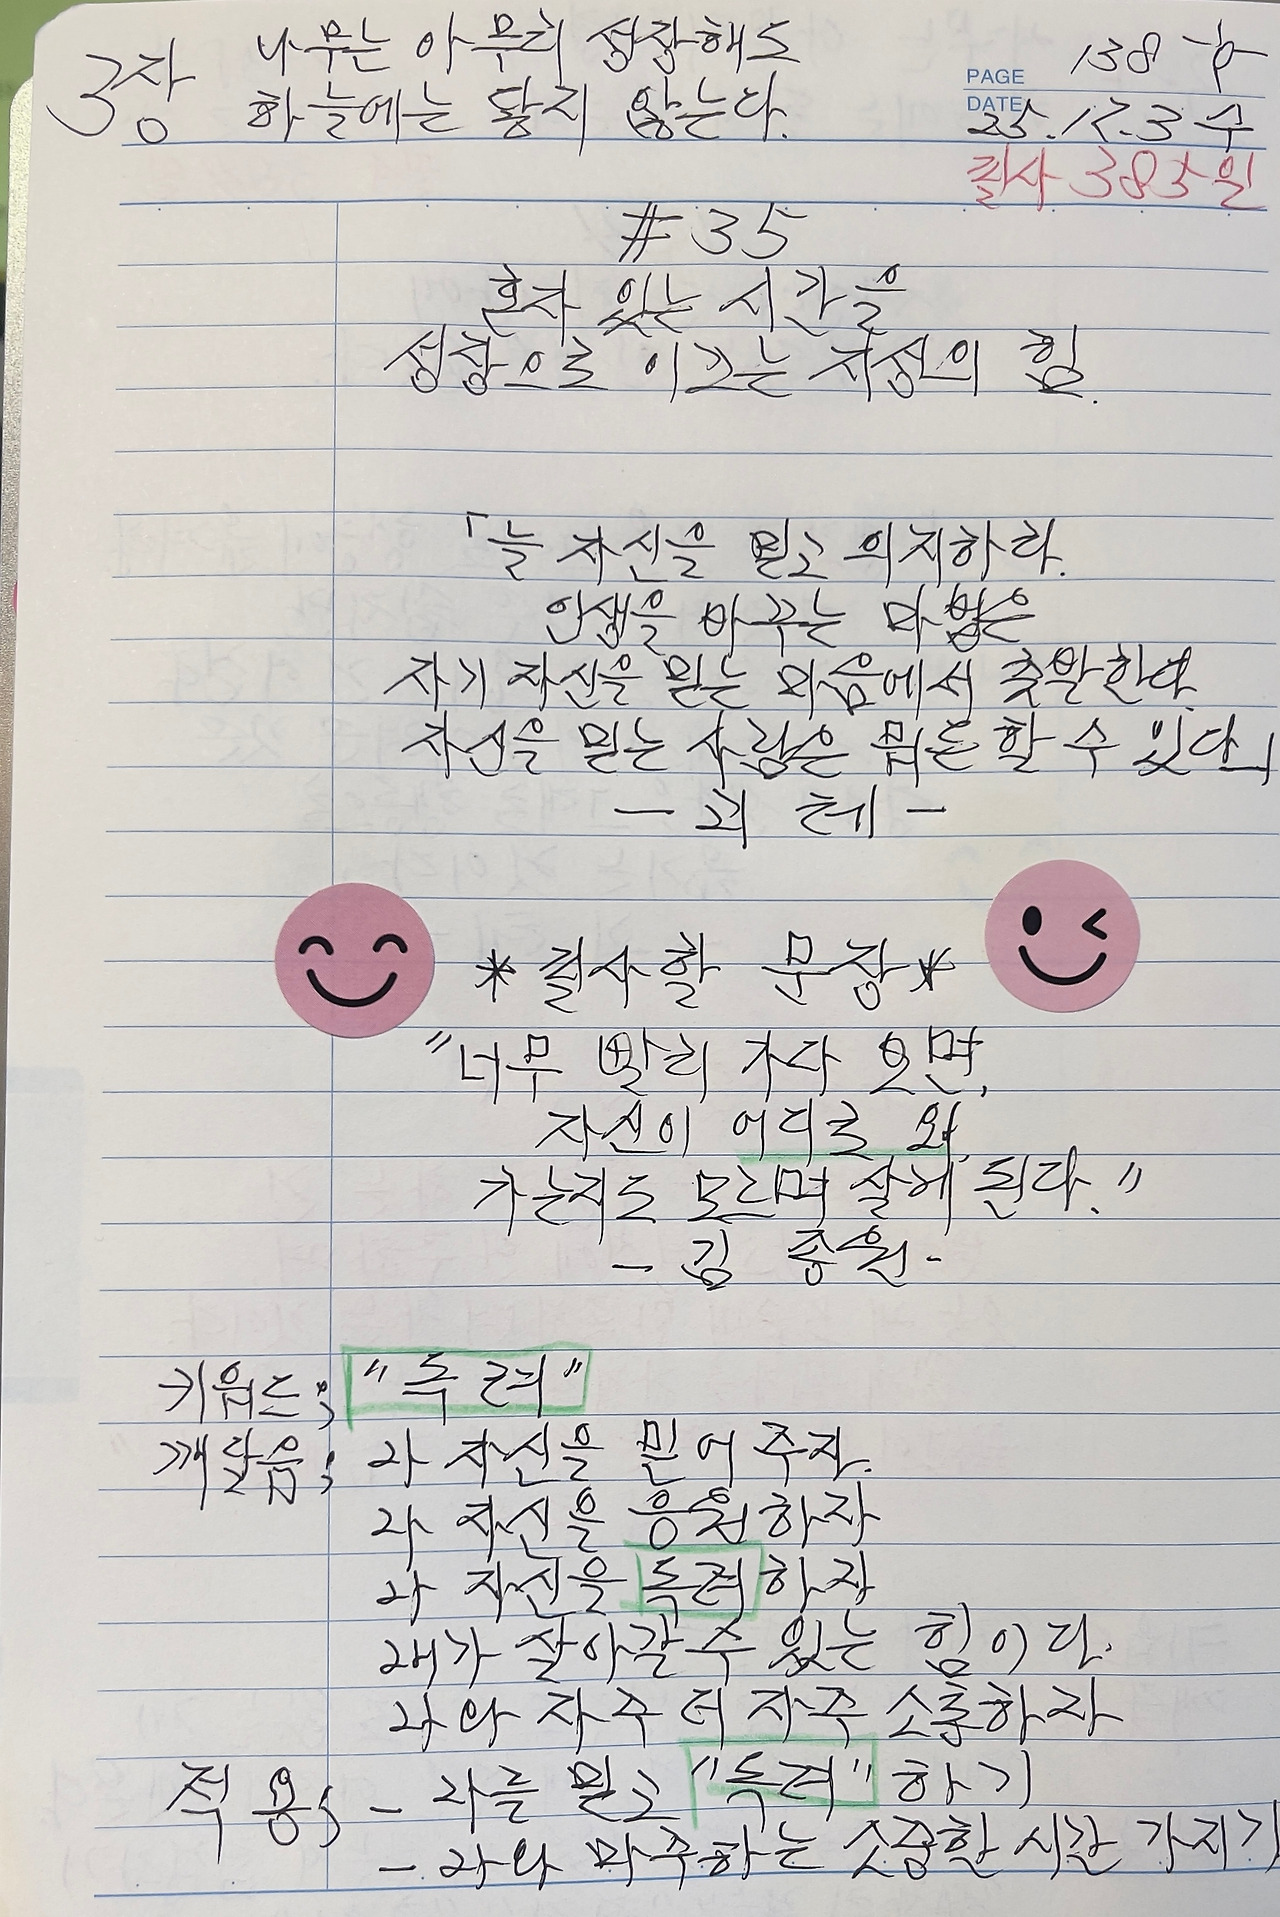 3장 나무는 아무리 성장해도
하늘에는 닿지 않는다.
PAGE 138 쪽
DATE 25.12.3 수
필사 385일
#35
혼자 있는 시간을
성장으로 이끄는 지성의 힘.
「늘 자신을 믿고 의지하라.
인생을 바꾸는 마법은
자기 자신을 믿는 마음에서 출발한다.
자신을 믿는 사람은 뭐든 할 수 있다」
- 괴테 -
*필사할 문장*
"너무 빨리 가다 보면,
자신이 어디로 와
가는지도 모르며 살게 된다."
- 김종원 -
키워드; "독려"
깨달음; 나 자신을 믿어 주자.
나 자신을 응원하자
나 자신을 독려하자
내가 살아갈 수 있는 힘이다.
나와 자주 더 자주 소통하자
적용; - 나를 믿고 "독려"하기
- 나와 마주하는 소중한 시간 가지기